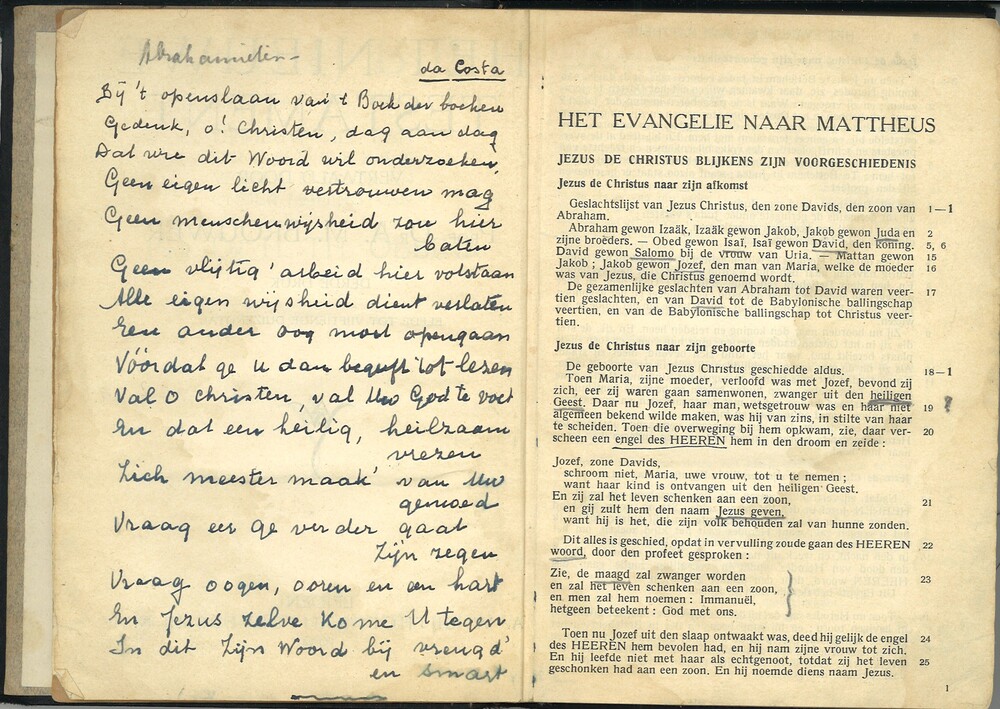 Abrahamieten -
da Costa
Bij 't openslaan van 't Boek der boeken
Gedenk, o! Christen, dag aan dag
Dat wie dit Woord wil onderzoeken,
Geen eigen licht vertrouwen mag
Geen menschenwijsheid zou hier
baten
Geen vlijtig' arbeid hier volstaan
Alle eigen wijsheid dient verlaten
Een ander oog moet opengaan
Vóórdat ge u dan begeeft tot lezen
Val o christen, val Uw God te voet
En dat een heilig, heilzaam
vrezen
Zich meester maak' van Uw
gemoed
Vraag eer ge verder gaat
Zijn zegen
Vraag oogen, ooren en een hart
En Jezus zelve kome U tegen
In dit Zijn Woord bij vreugd'
en smart
HET EVANGELIE NAAR MATTHEUS
JEZUS DE CHRISTUS BLIJKENS ZIJN VOORGESCHIEDENIS
Jezus de Christus naar zijn afkomst
Geslachtslijst van Jezus Christus, den zone Davids, den zoon van 1—1
Abraham.
Abraham gewon Izaäk, Izaäk gewon Jakob, Jakob gewon Juda en 2
zijne broeders. — Obed gewon Isaï, Isaï gewon David, den koning. 5, 6
David gewon Salomo bij de vrouw van Uria. — Mattan gewon 15
Jakob ; Jakob gewon Jozef, den man van Maria, welke de moeder 16
was van Jezus, die Christus genoemd wordt.
De gezamenlijke geslachten van Abraham tot David waren veer- 17
tien geslachten, en van David tot de Babylonische ballingschap
veertien, en van de Babylonische ballingschap tot Christus veer-
tien.
Jezus de Christus naar zijn geboorte
De geboorte van Jezus Christus geschiedde aldus. 18—1
Toen Maria, zijne moeder, verloofd was met Jozef, bevond zij
zich, eer zij waren gaan samenwonen, zwanger uit den heiligen
Geest. Daar nu Jozef, haar man, wetsgetrouw was en haar niet 19 ?
algemeen bekend wilde maken, was hij van zins, in stilte van haar
te scheiden. Toen die overweging bij hem opkwam, zie, daar ver- 20
scheen een engel des HEEREN hem in den droom en zeide :
Jozef, zone Davids,
schroom niet, Maria, uwe vrouw, tot u te nemen ;
want haar kind is ontvangen uit den heiligen Geest.
En zij zal het leven schenken aan een zoon, 21
en gij zult hem den naam Jezus geven,
want hij is het, die zijn volk behouden zal van hunne zonden.
Dit alles is geschied, opdat in vervulling zoude gaan des HEEREN 22
woord, door den profeet gesproken :
Zie, de maagd zal zwanger worden 23
en zal het leven schenken aan een zoon,
en men zal hem noemen : Immanuël,
hetgeen beteekent : God met ons.
Toen nu Jozef uit den slaap ontwaakt was, deed hij gelijk de engel 24
des HEEREN hem bevolen had, en hij nam zijne vrouw tot zich.
En hij leefde niet met haar als echtgenoot, totdat zij het leven 25
geschonken had aan een zoon. En hij noemde diens naam Jezus.
1